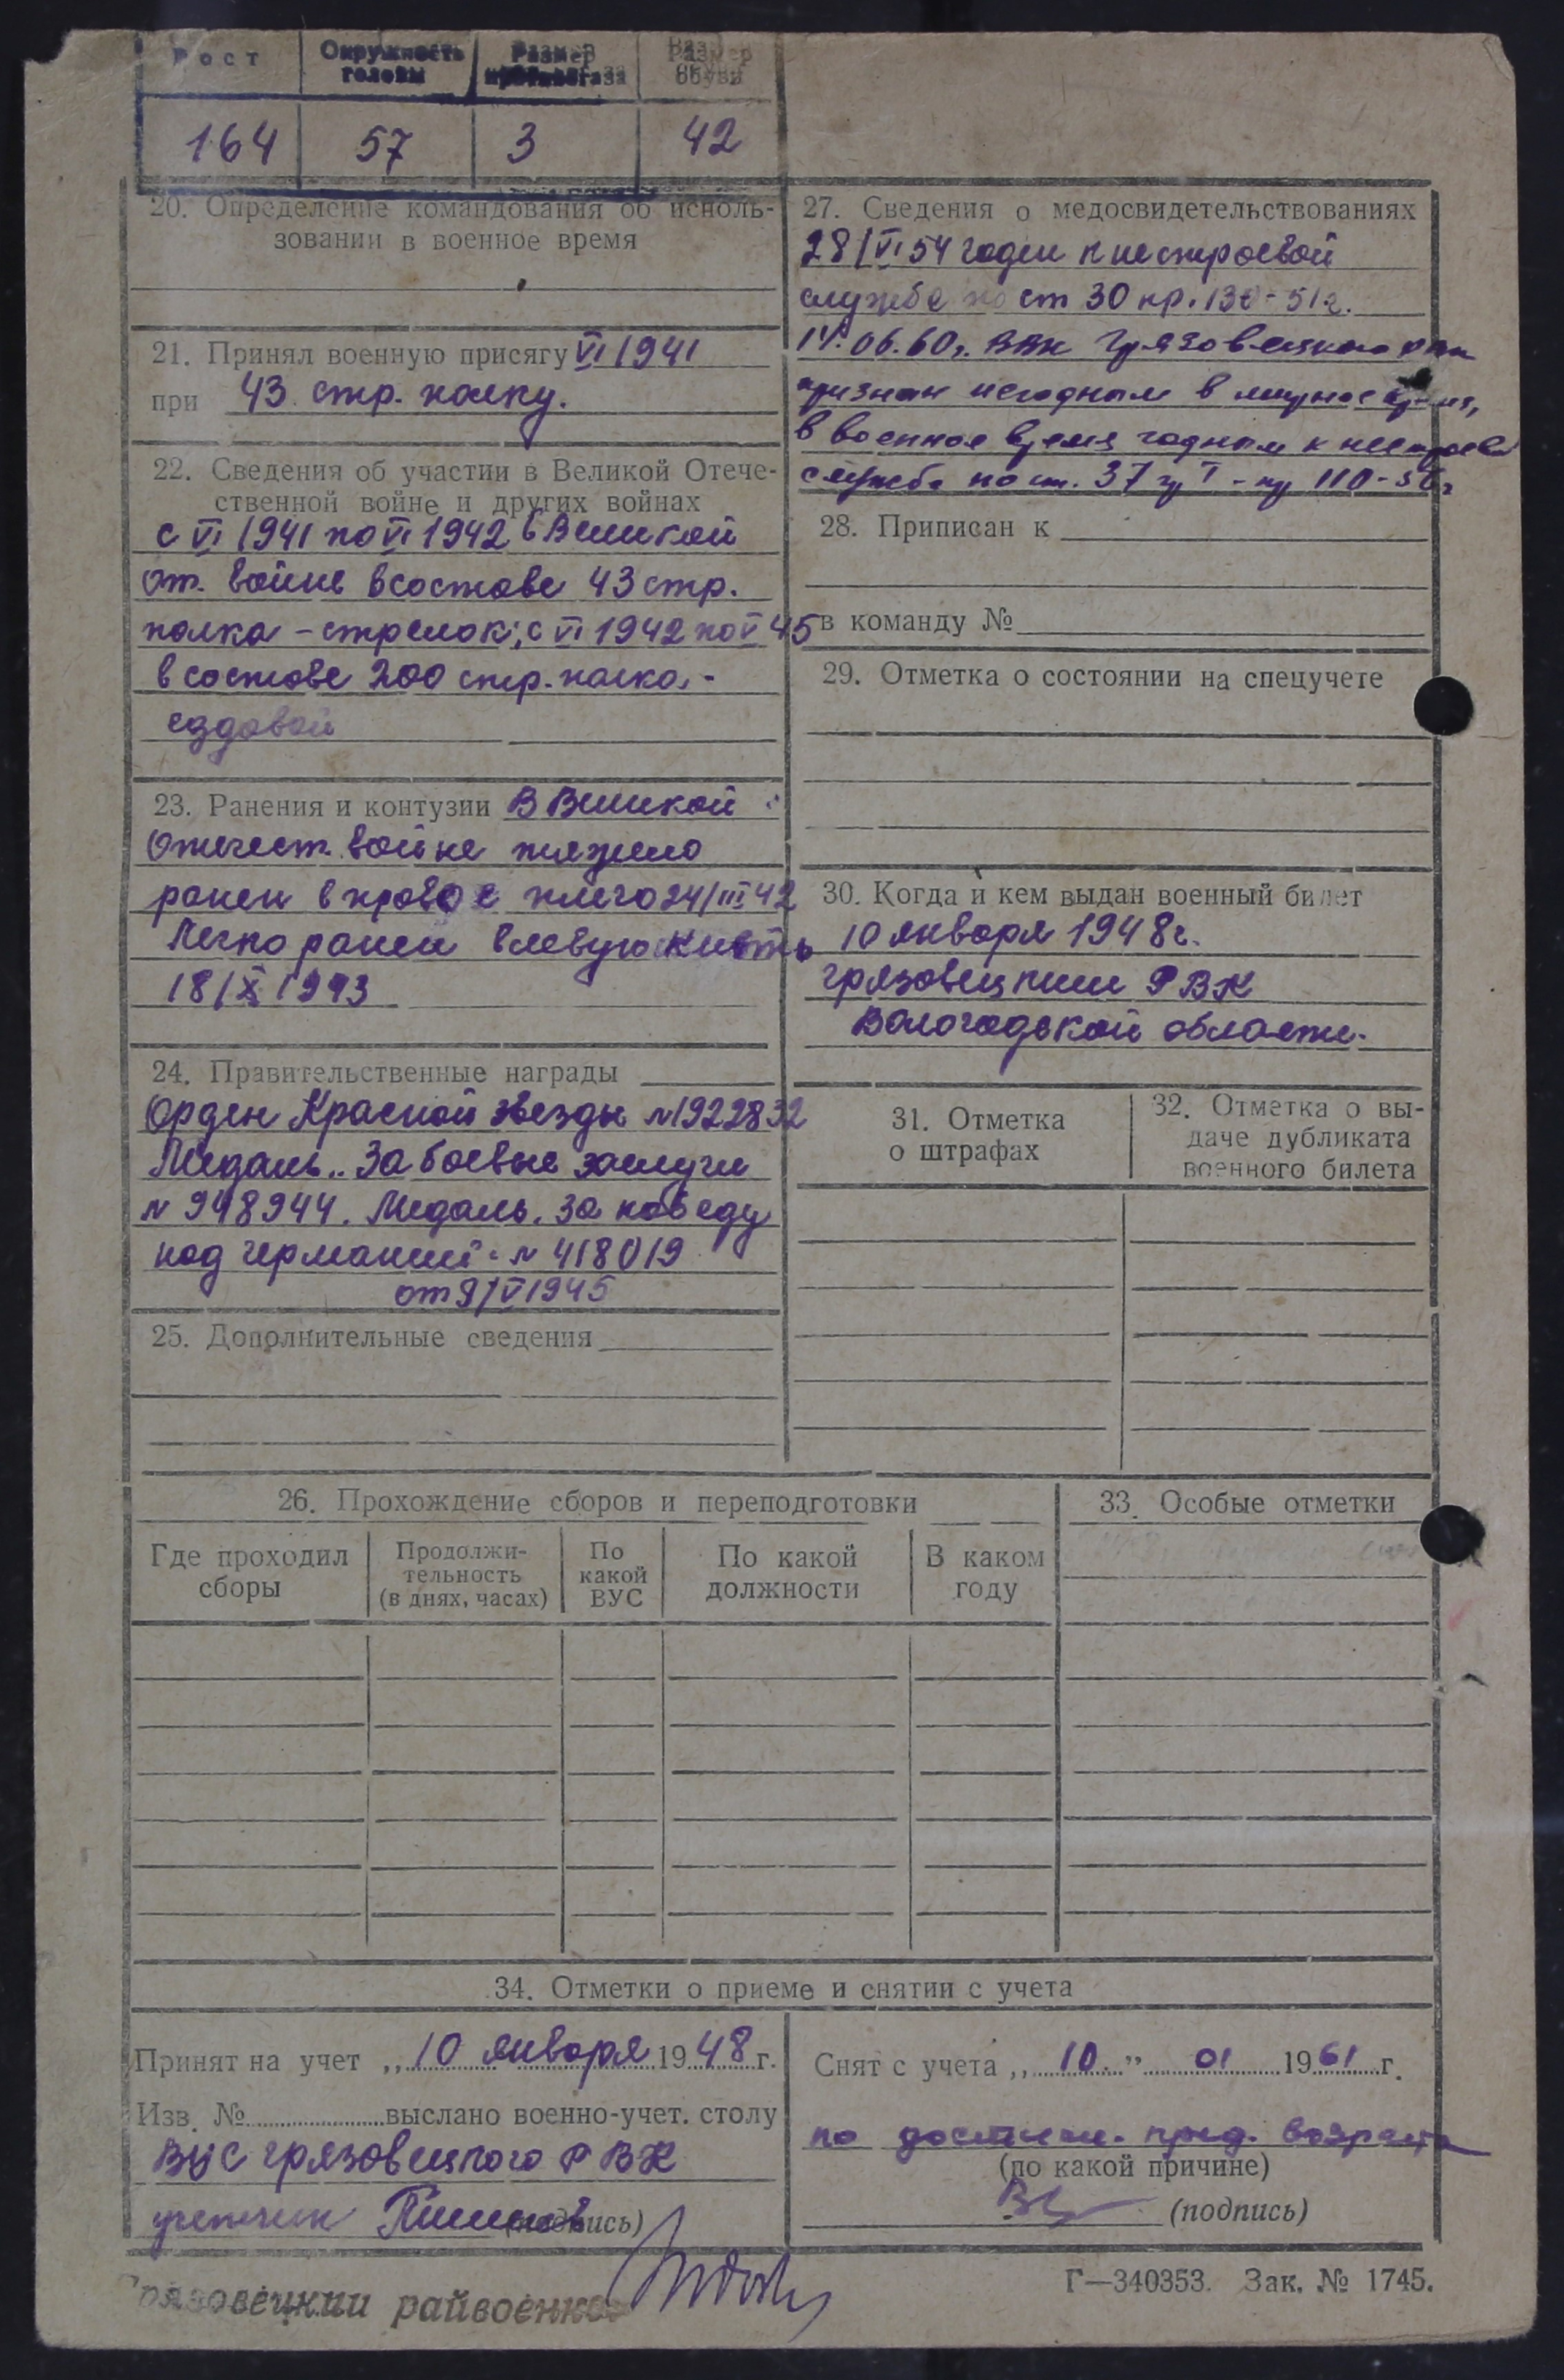 Рост Окружность головы Размер противогаза Размер обуви
164 57 3 42
20. Определение командования об исполь-
зовании в военное время
21. Принял военную присягу VI 1941
при 43 стр. полку.
22. Сведения об участии в Великой Отече-
ственной войне и других войнах
с VI 1941 по VI 1942 в Великой
От. войне в составе 43 стр.
полка - стрелок; с VI 1942 по V 45
в составе 200 стр. полка -
ездовой
23. Ранения и контузии В Великой
Отечест. войне тяжело
ранен в правое плечо 24/III 42
Легко ранен в левую кисть
18/X 1943
24. Правительственные награды
Орден Красной звезды №1922832
Медаль „За боевые заслуги
№ 948944. Медаль „За победу
над германией" № 418019
от 9/V 1945
25. Дополнительные сведения
27. Сведения о медосвидетельствованиях
28/VI 54 годен к нестроевой
службе по ст 30 пр. 130-51г.
14.06.60г. ВВК Грязовецкого РВК
признан негодным в мирное время,
в военное время годным к нестроев
службе по ст. 37 гр I - пр 110-56г
28. Приписан к
в команду №
29. Отметка о состоянии на спецучете
30. Когда и кем выдан военный билет
10 января 1948г.
грязовецким РВК
Вологодской области.
31. Отметка
о штрафах
32. Отметка о вы-
даче дубликата
военного билета
26. Прохождение сборов и переподготовки
Где проходил
сборы
Продолжи-
тельность
(в днях, часах)
По
какой
ВУС
По какой
должности
В каком
году
33. Особые отметки
34. Отметки о приеме и снятии с учета
Принят на учет „10 января 1948 г.
Изв. № выслано военно-учет. столу
ВУС грязовецкого РВК
(подпись)
Снят с учета „10." 01 1961 г.
по достиж. пред. возраста
(по какой причине)
(подпись)
Грязовецкий райвоенко
Г—340353. Зак. № 1745.